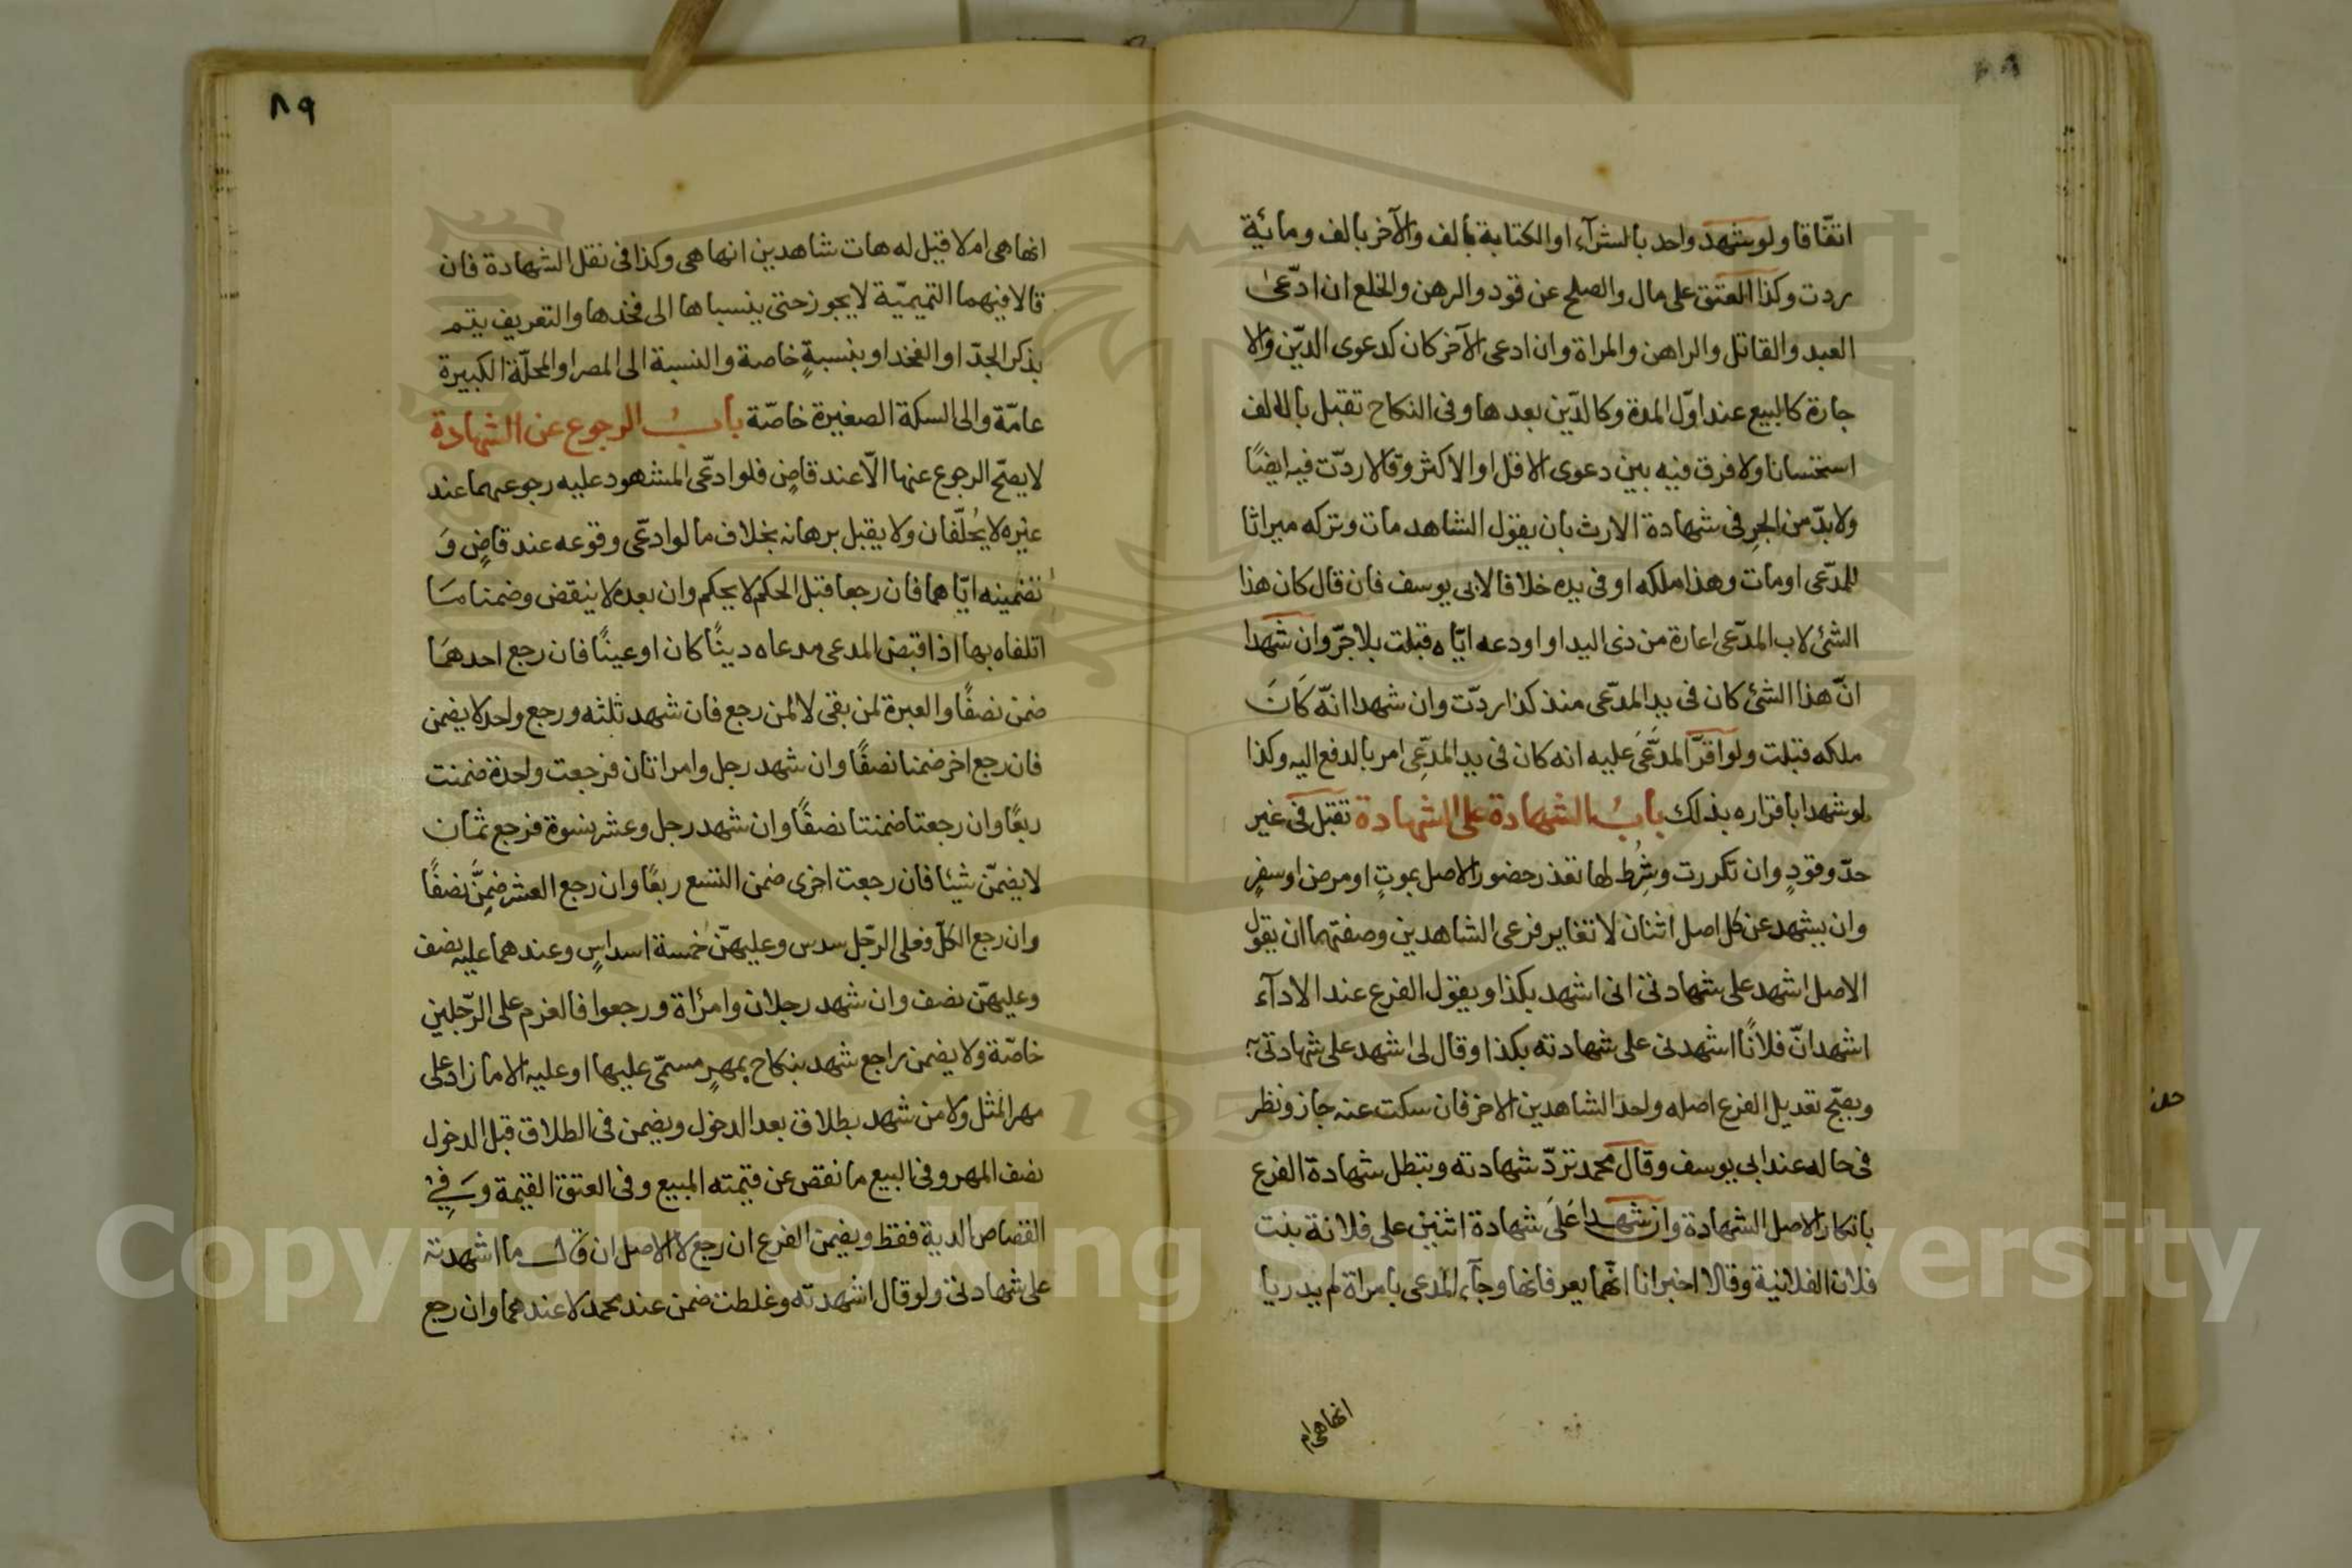 اتفاقا ولو شهد واحد بالشرآء او الكتابة بالف والآخر بالف ومائية
ردت وكذا العتق على مال والصلح عن قود والرهن والخلع ان ادّعى
العبد والقاتل والراهن والمراة وان ادعى الآخر كان كدعوى الدّين والا
جارة كالبيع عند اوّل المدة وكالدّين بعدها وفى النكاح تقبل بالالف
استحسانا ولا فرق فيه بين دعوى الاقل او الاكثر وقالا ردّت فيه ايضًا
ولا بدّ من الجرِ فى شهادة الارث بان يقول الشاهد مات وتركه ميراثا
للمدّعى او مات وهذا ملكه او فى يده خلافا لابى يوسف فان قال كان هذا
الشئ لاب المدّعى اعارة من ذى اليد او اودعه ايّاه قبلت بلا جرّ وان شهدا
انّ هذا الشئ كان فى يد المدّعى منذ كذا ردّت وان شهدا انّه كَانَ
ملكه قبلت ولو اقرّ المدّعَىَ عليه انه كان فى يد المدّعِى امر بالدفع اليه وكذا
لو شهدا باقراره بذلك بابُ الشهادة على الشهادة تقبل فى غير
حدّ وقودٍ وان تكررت وشُرِط لها تعذر حضور الاصل بموتٍ او مرض او سفرٍ
وان يشهد عن كل اصل اثنان لا تغاير فرعى الشاهدين وصفتهما ان يقول
الاصل اشهد على شهادتى انى اشهد بكذا ويقول الفرع عند الادآء
اشهد انّ فلانًا اشهدنى على شهادته بكذا وقال لى اشهد على شهادتى به
ويصّح تعديل الفرع اصله واحد الشاهدين الاخر فان سكت عنه جاز ونظر
فى حاله عند ابى يوسف وقال محمد تردّ شهادته وتبطل شهادة الفرع
بانكار الاصل الشهادة وان شهدا عَلَى شهادة اثنين على فلانة بنت
فلان الفلانية وقالا اخبرانا انّهما يعرفانها وجآء المدعى بامراة لم يدريا
انها هى ام
٨٩
انها هى ام لا قيل له هات شاهدين انها هى وكذا فى نقل الشهادة فان
قالا فيهما التميميّة لا يجوز حتى ينسباها الى فخذها والتعريف يتم
بذكر الجدّ او الفخذ او بنسبةٍ خاصة والنسبة الى المصر او المحلّة الكبيرة
عامّة والى السكة الصغيرة خاصّة بابُ الرجوع عن الشهادة
لا يصّح الرجوع عنها الّا عند قاضٍ فلو ادّعى المشهود عليه رجوعهما عند
غيره لا يُحلّفان ولا يقبل برهانه بخلاف ما لو ادعّى وقوعه عند قاضٍ وَ
تضمينه ايّاهما فان رجعا قبل الحكم لا يحكم وان بعده لا ينقض وضمنا مَا
اتلفاه بها اذا قبض المدعى مدعاه دينًا كان او عينًا فان رجع احدهمَا
ضمن نصفًا والعبرة لمن بقى لا لمن رجع فان شهد ثلثه ورجع واحد لا يضمن
فان رجع اخر ضمنا نصفًا وان شهد رجل وامراتان فرجعت واحدة ضمنت
ربعًا وان رجعتا ضمنتا نصفًا وان شهد رجل وعشر نسوة فرجع ثمان
لا يضمّن شيئا فان رجعت اخرى ضمن التسع ربعًا وان رجع العشر ضمِنَّ نصفًا
وان رجع الكلّ فعلى الرجّل سدس وعليهنّ خمسة اسداسٍ وعندهما عليه نصف
وعليهنّ نصف وان شهد رجلان وامرأة ورجعوا فالغرم على الرجّلين
خاصّة ولا يضمن راجع شهد بنكاح بمهرٍ مسمّى عليها او عليه الا ما زاد على
مهر المثل ولا من شهد بطلاق بعد الدخول ويضمن فى الطلاق قبل الدخول
نصف المهر وفى البيع ما نقص عن قيمته المبيع وفى العتق القيمة وَفِى
القصاص الدية فقط ويضمن الفرع ان رجع لا الاصل ان قال ما اشهدته
على شهادتى ولو قال اشهدته وغلطت ضمن عند محمد لا عندهما وان رجع
Copyright © King Saud University